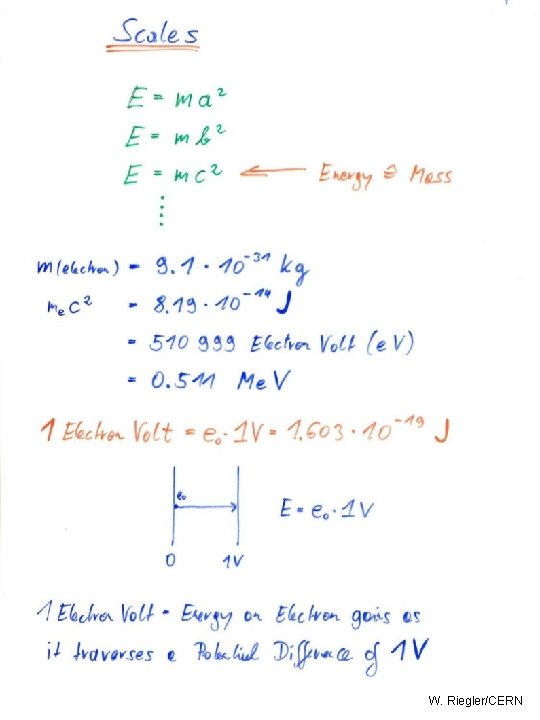 Scales
E = ma²
E = mb²
E = mc² ← Energy ≙ Mass
⋮
m(electron) = 9.1 · 10⁻³¹ kg
mₑc² = 8.19 · 10⁻¹⁴ J
= 510 999 Electron Volt (eV)
= 0.511 MeV
1 Electron Volt = e₀ · 1V = 1.603 · 10⁻¹⁹ J
e₀
E = e₀ · 1V
0 1V
1 Electron Volt = Energy an Electron gains as
it traverses a Potential Difference of 1V
W. Riegler/CERN